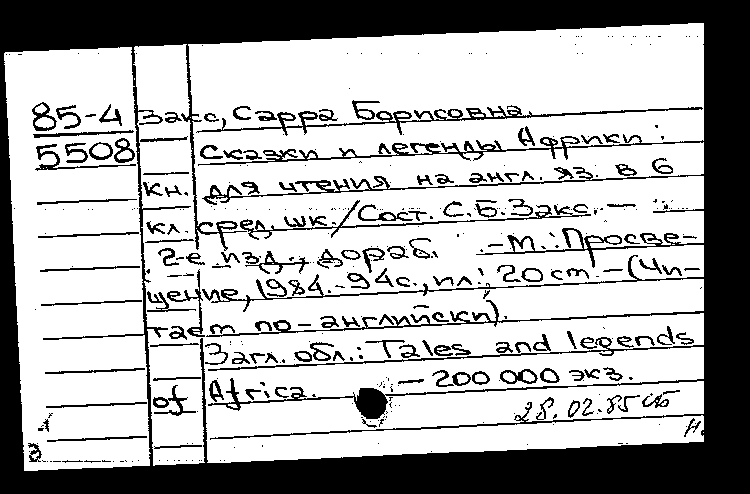 85-4 Закс, Сарра Борисовна.
5508 Сказки и легенды Африки:
кн. для чтения на англ. яз. в 6
кл. сред. шк./Сост. С.Б. Закс. —
2-е изд., дораб. — М.: Просве-
щение, 1984. - 94с., ил.; 20 см — (Чи-
таем по-английски).
Загл. обл.: Tales and legends
of Africa. — 200 000 экз.
28.02.85